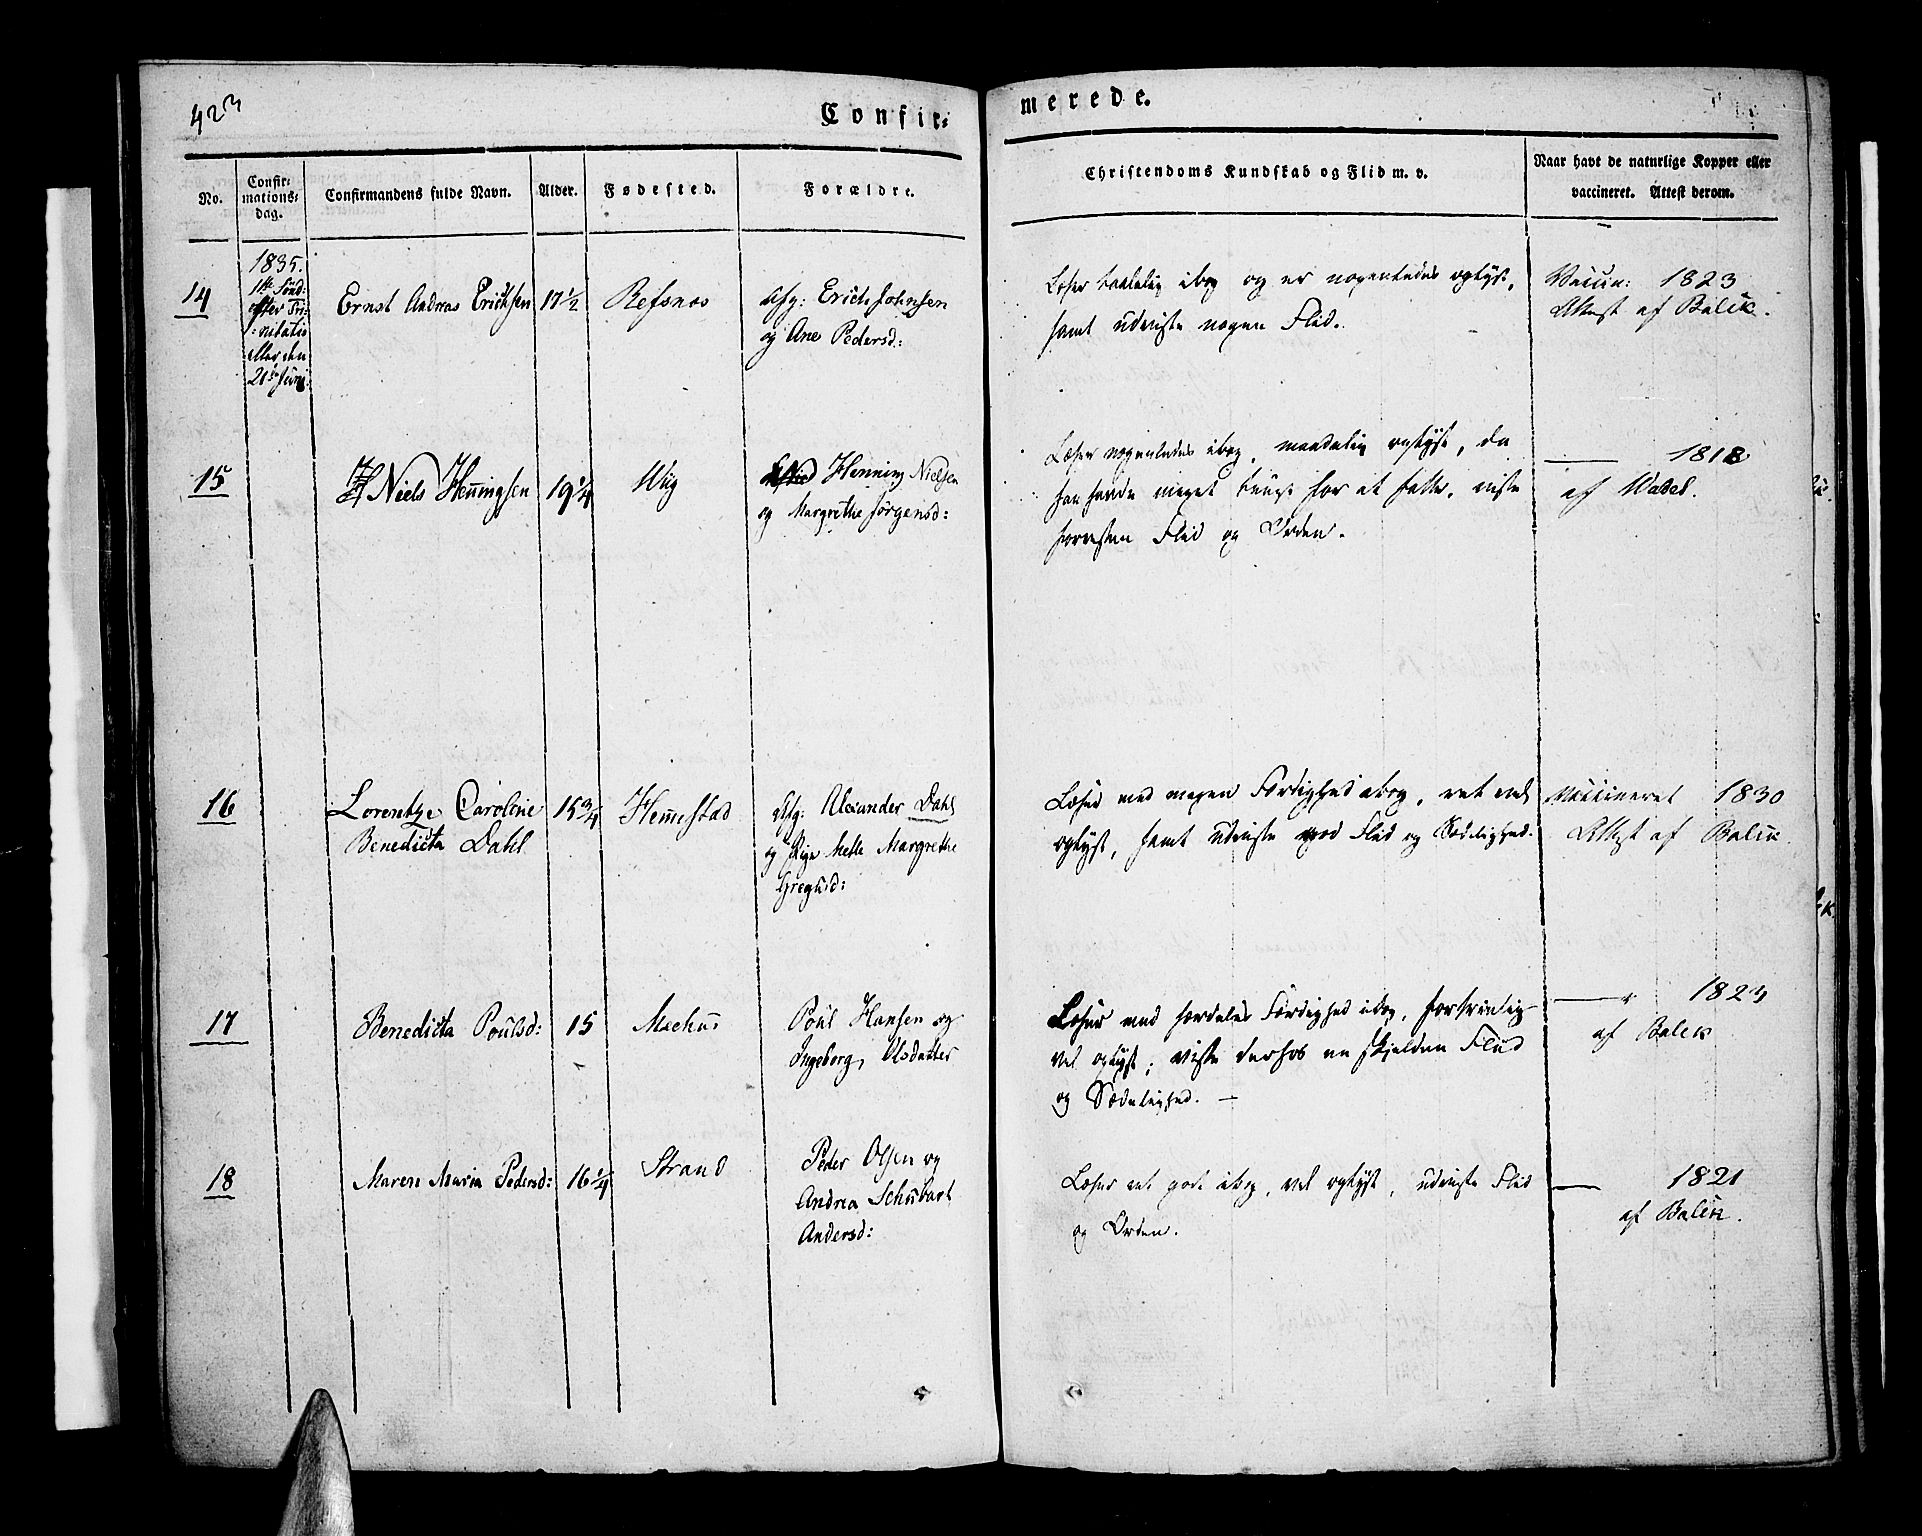 423
Confir=
merede.
No.
Confir=
mations=
dag.
Confirmandens fulde Navn.
Alder.
Fødested.
Forældre.
Christendoms Kundskab og Flid m. v.
Naar havt de naturlige Kopper eller
vaccineret. Attest derom.
14
1835.
1ste Sønd:
efter Tri:
:nitatis
eller den
21de Juni
Ernst Andreas Erichsen
17 1/2
Refsnes
Afg: Erich Johnsen
og Ane Pedersd:
Læser taalelig i bog og er nogenledes oplyst,
samt udviste nogen Flid.
Vaccin: 1823
Attest af Balck.
15
Niels Henningsen
19 1/4
Wiig
Henning Nielsen
og Margrethe Jørgensd:
Læser nogenledes i bog, maadelig oplyst, da
han havde meget tungt for at fatte, viste
forresten Flid og Orden.
— 1818
af Wadel.
16
Lorentze Caroline
Benedicta Dahl
15 3/4
Hemmestad
Afg: Alexander Dahl
og Pige Mette Margrethe
Gregusd:
Læser med megen Færdighed i bog, ret vel
oplyst, samt udviste god Flid og Sædelighed.
Vaccineret 1830
Attest af Balck.
17
Benedicta Poulsd:
15
Meehus
Poul Hansen og
Ingeborg Olsdatter
Læser med særdeles Færdighed i bog, fortrinlig
vel oplyst; viste derhos en skjelden Flid
og Sædelighed. —
— 1823
af Balck
18
Maren Maria Pedersd:
16 1/4
Strand
Peder Olsen og
Andrea Schubart
Andersd:
Læser ret godt i bog, vel oplyst, udviste Flid
og Orden.
— 1821
af Balck.